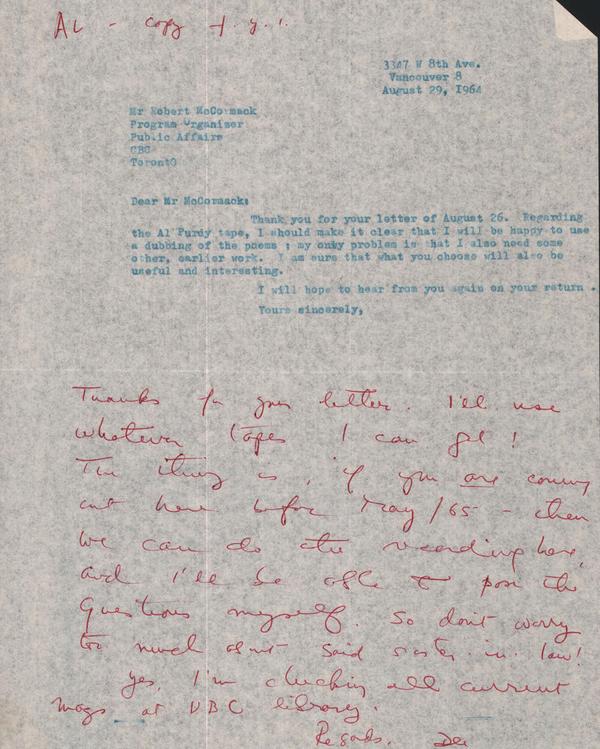 AL - copy f.y.i.
3347 W 8th Ave.
Vancouver 8
August 29, 1964
Mr Robert McCormack
Program Organizer
Public Affairs
CBC
TorontO
Dear Mr McCormack:
Thank you for your letter of August 26. Regarding
the Al Purdy tape, I should make it clear that I will be happy to use
a dubbing of the poems ; my only problem is that I also need some
other, earlier work. I am sure that what you choose will also be
useful and interesting.
I will hope to hear from you again on your return .
Yours sincerely,
Thanks for your letter. I'll use
whatever tapes I can get!
The thing is, if you are coming
out here before May/65 - then
we can do the recording here,
and I'll be able to pose the
questions myself. So don't worry
too much about said sister-in-law!
Yes, I'm checking all current
mags at UBC library.
Regards,